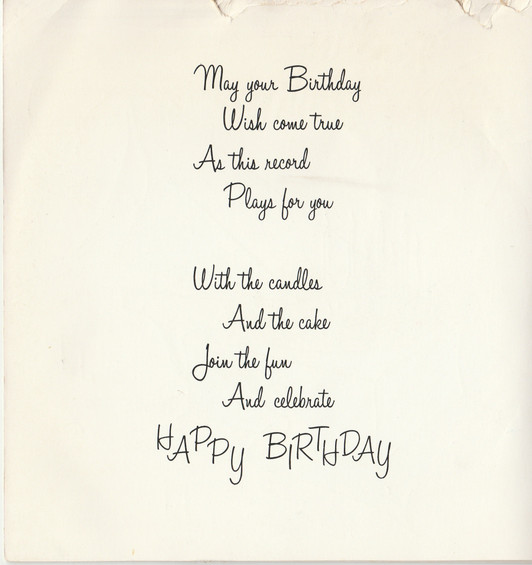 May your Birthday
Wish come true
As this record
Plays for you
With the candles
And the cake
Join the fun
And celebrate
HAPPY BIRTHDAY